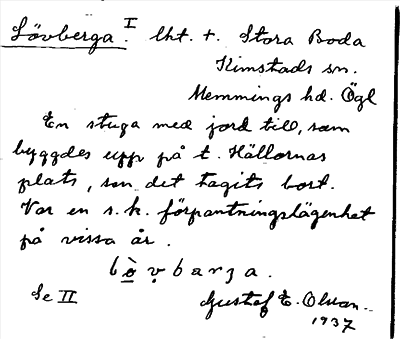 Lövberga. I lht. t. Stora Boda
Kimstads sn.
Memmings hd. Ögl
En stuga med jord till, som
byggdes upp på t. Hällornas
plats, sen det tagits bort.
Var en s.k. förpantningslägenhet
på vissa år.
Se II Gustaf E. Olsson.
1937